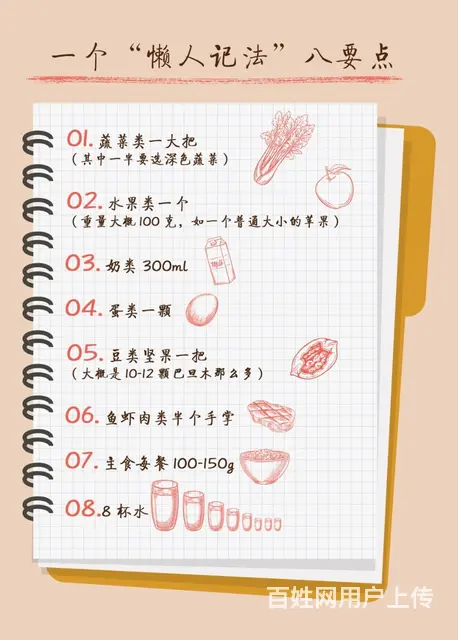 一个“懒人记法”八要点
01. 蔬菜类一大把
（其中一半要选深色蔬菜）
02. 水果类一个
（重量大概100克，如一个普通大小的苹果）
03. 奶类 300ml
04. 蛋类一颗
05. 豆类坚果一把
（大概是10-12颗巴旦木那么多）
06. 鱼虾肉类半个手掌
07. 主食每餐100-150g
08. 8杯水
百姓网用户上传